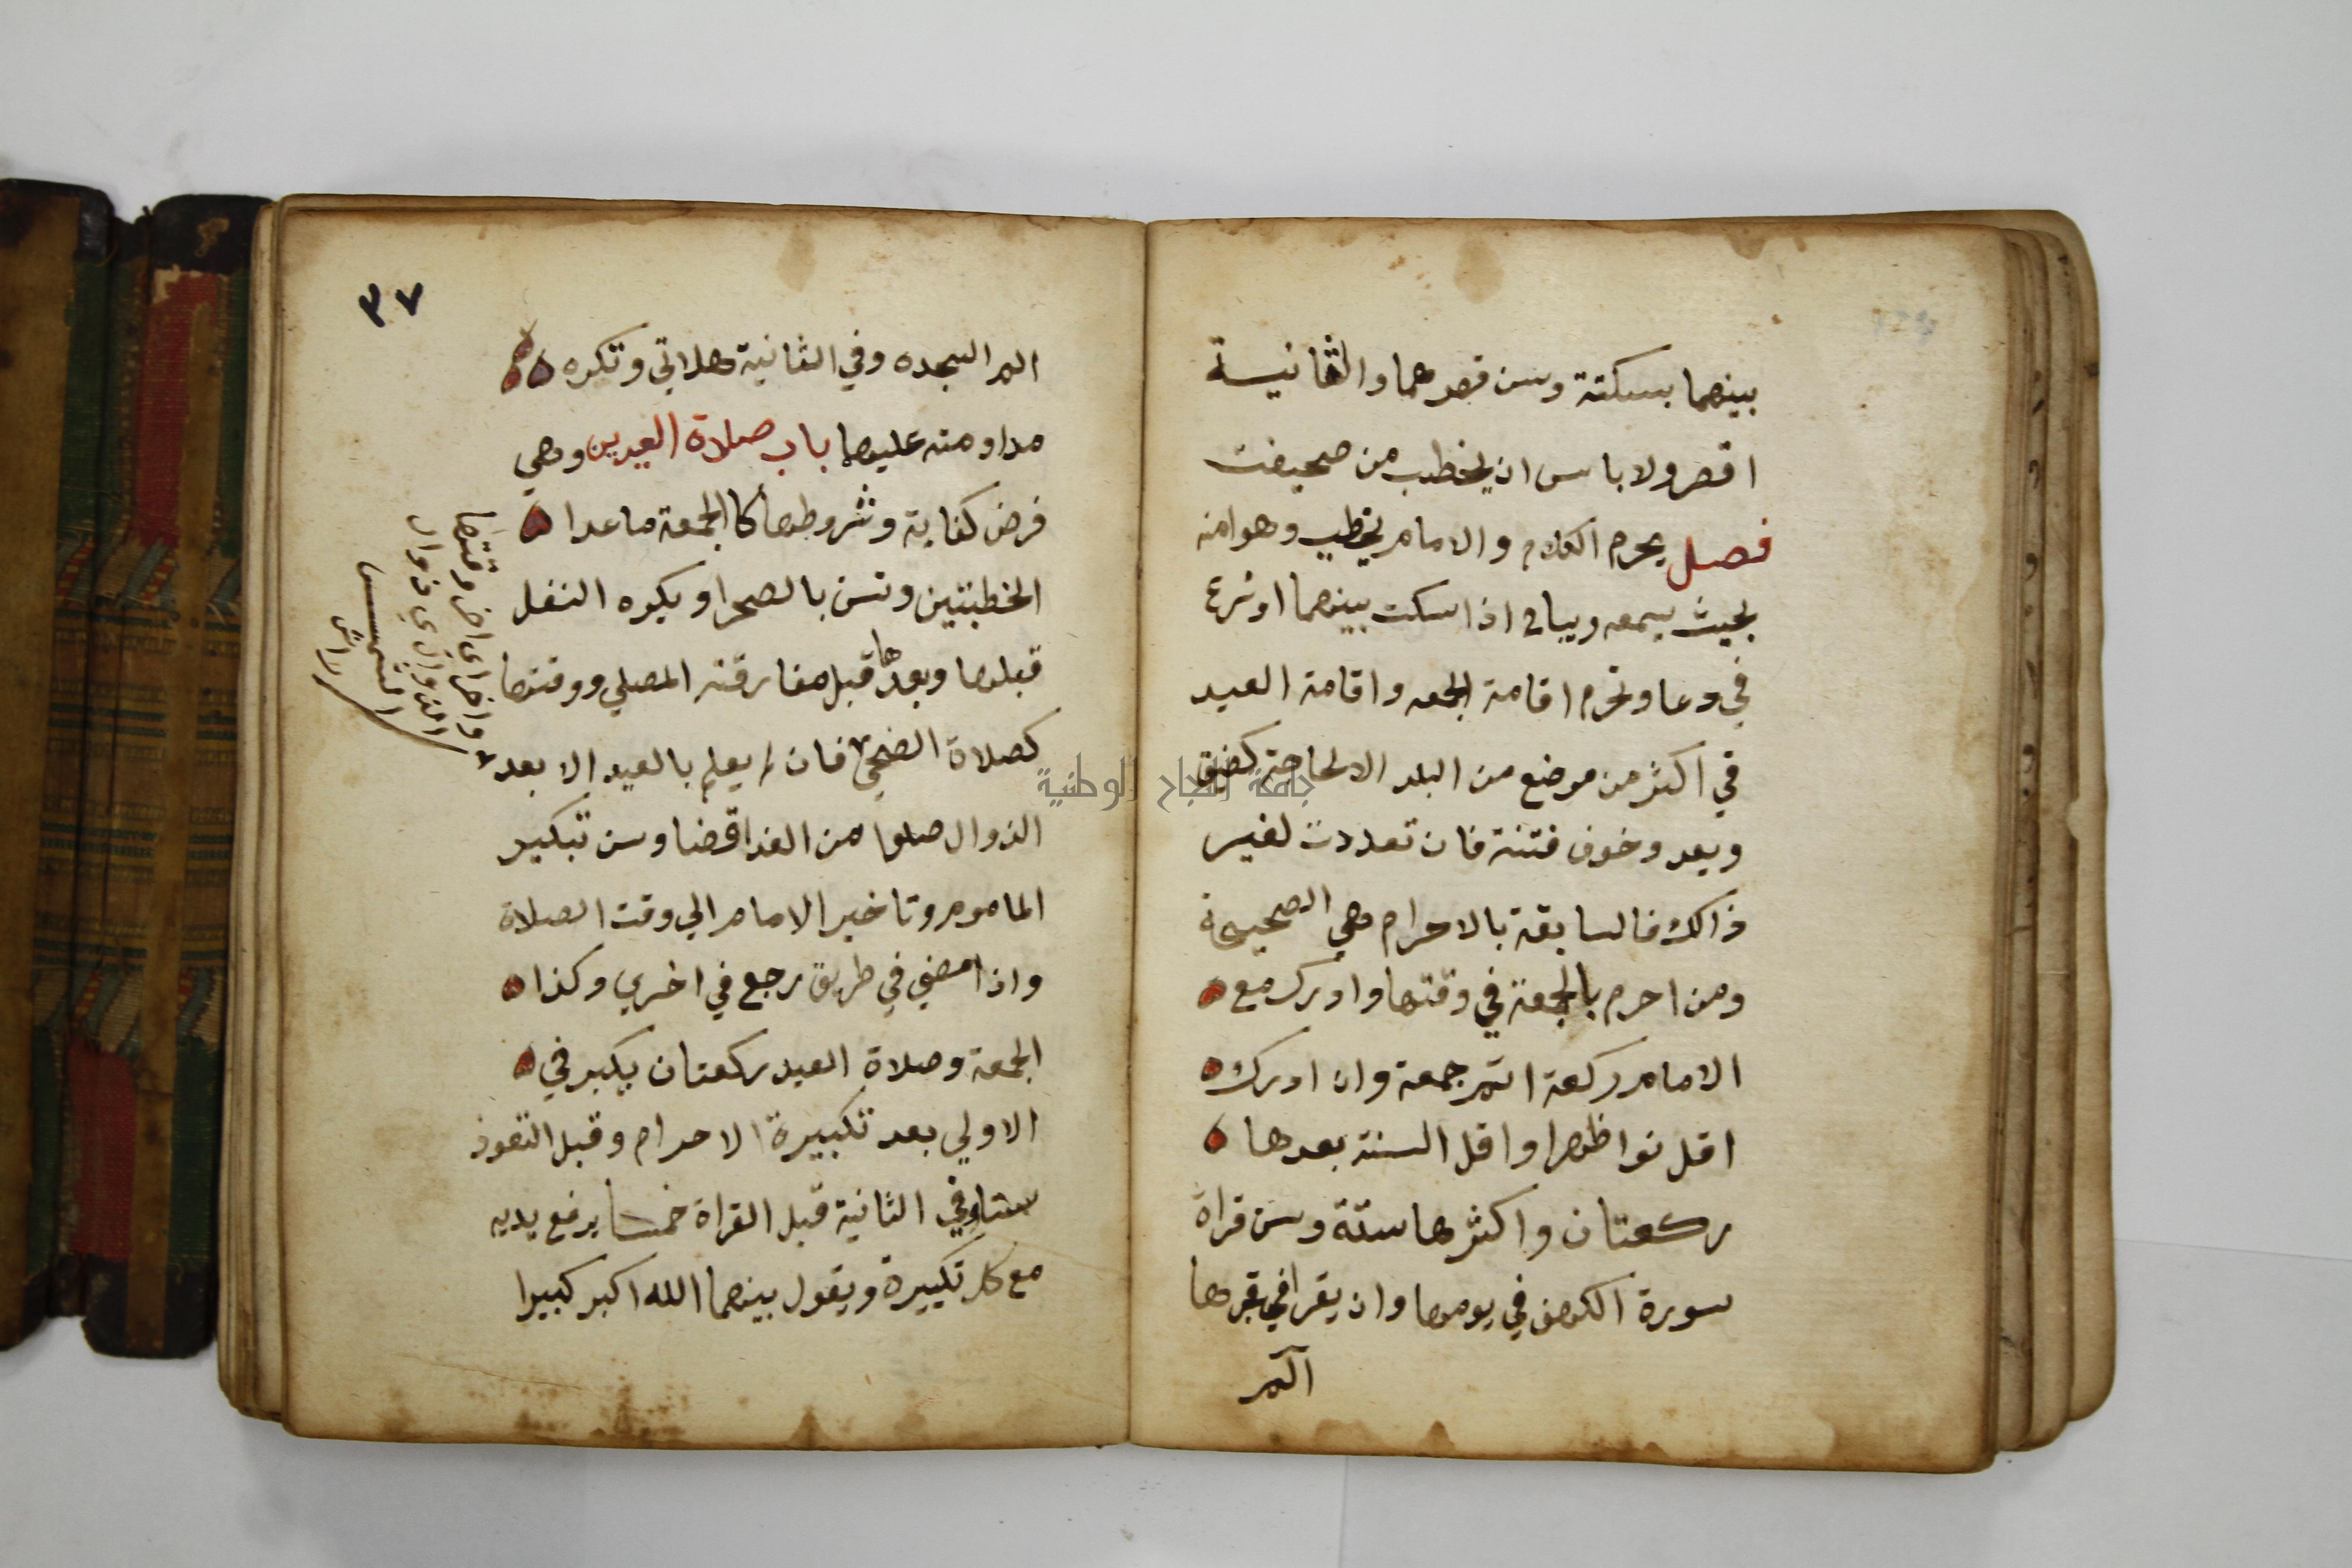 بينهما بسكتة وسن قصرهما والثانيسة
اقصر ولا باس ان يخطب من صحيفت
فصل يحرم الكلام والامام يخطب وهو امنه
بحيث يسمعه ويباح اذا سكت بينهما او شرع
في دعا وتحرم اقامة الجمعه واقامة العيد
في اكثر من موضع من البلد الالحاجة كضيق
وبعد وخوف فتنة فان تعددت لغير
ذالك فالسابقة بالاحرام وهي الصحيحة
ومن احرم بالجمعة في وقتها وادرك مع
الامام ركعة اتمر جمعة وان ادرك
اقل نوا ظهرا واقل السنة بعدها
ركعتان واكثرها ستة وسن قراة
سورة الكهف في يومها وان يقرا في فجرها
آلمر
٣٧
المر السجده وفي الثانية هلاتي وتكره
مداومته عليهما باب صلاة العيدين وهي
فرض كفاية وشروطها كالجمعة ماعدا
الخطبتين وتسن بالصحرا ويكره النفل
قبلها وبعدها قبل مفارقته المصلي ووقتها
كصلاة الضحي فان لم يعلم بالعيد الا بعد
الزوال صلوا من الغد اقضا وسن تبكير
المامومر وتاخير الامام الي وقت الصلاة
واذا مضي في طريق رجع في اخري وكذا
الجمعة وصلاة العيد ركعتان يكبر في
الاولي بعد تكبيرة الاحرام وقبل التعوذ
ستا وفي الثانية قبل القراة خمسا يرفع يديه
مع كل تكبيرة ويقول بينهما الله اكبر كبيرا
واخر اي اخر وقتها
الزوال اي زوال
الشمس
جامعة النجاح الوطنية